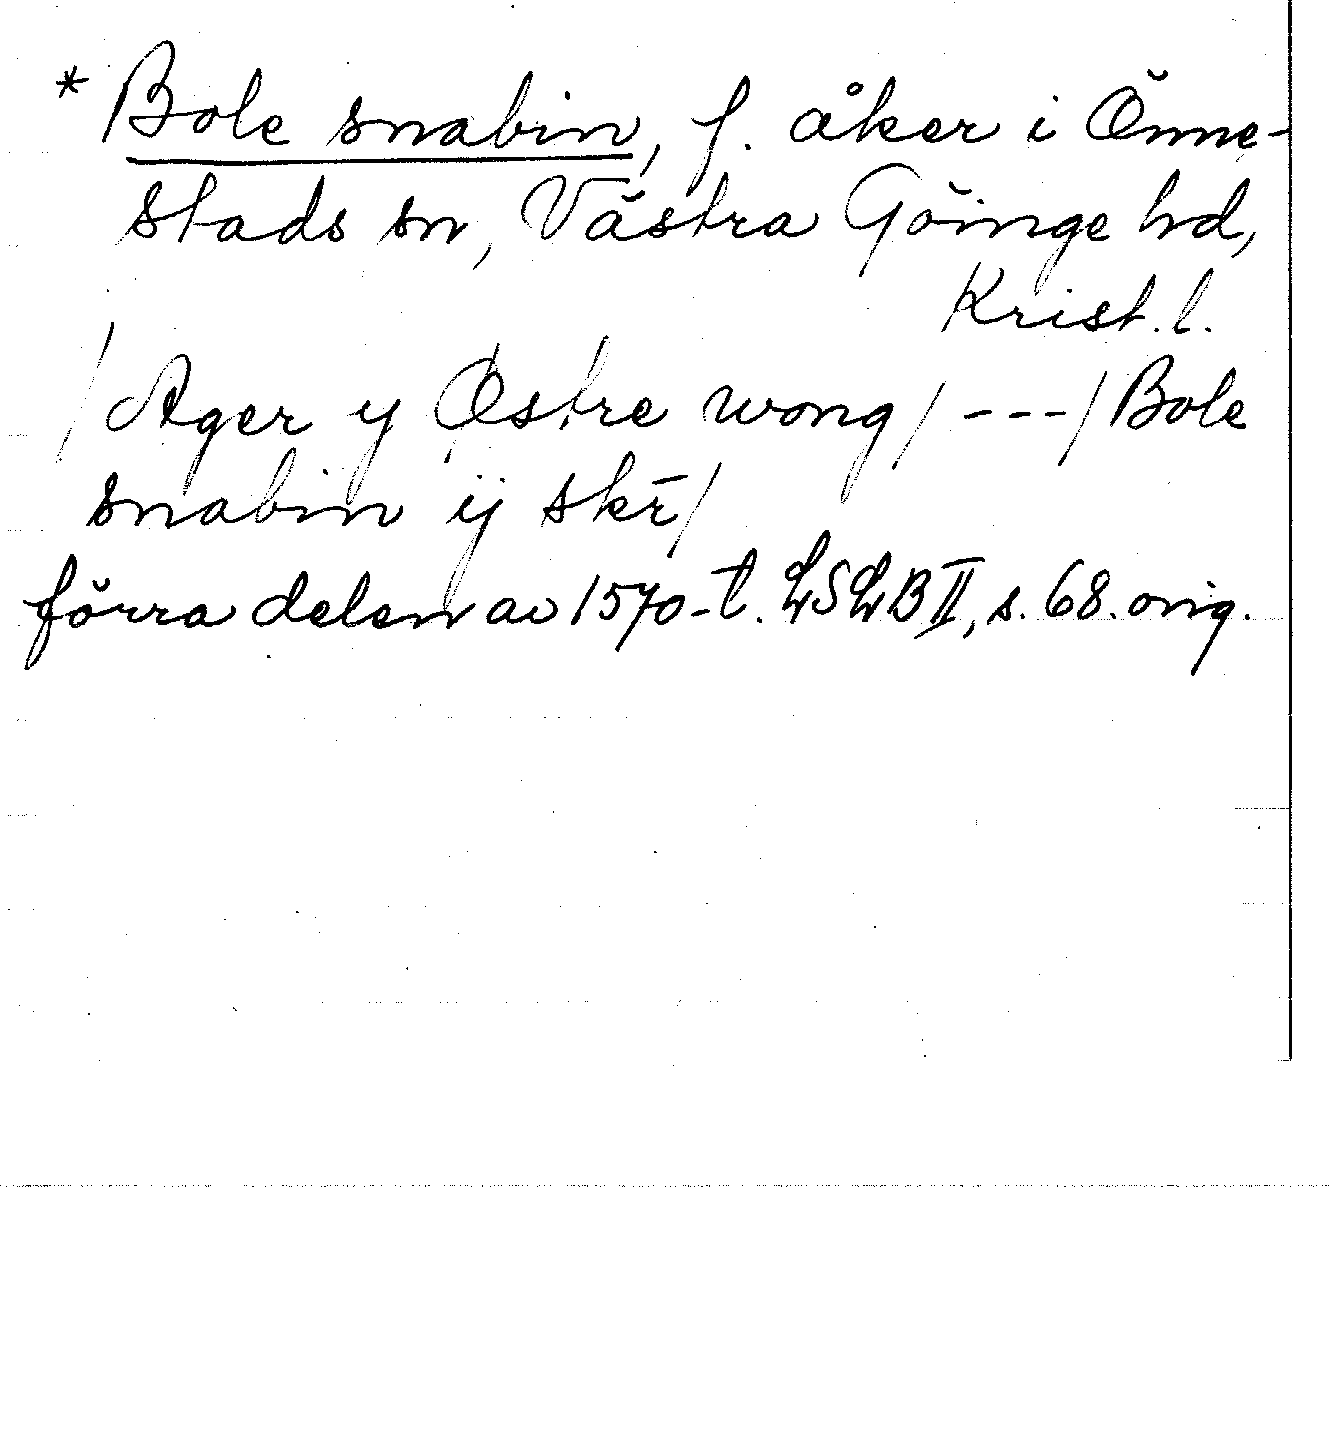 * Bole snabin, f. åker i Önne-
stads sn, Västra Göinge hd,
Krist. l.
/Ager y Østre wong/ ---/Bole
snabin ij skr̄/
förra delen av 1570-t. LSLB II, s. 68. orig.